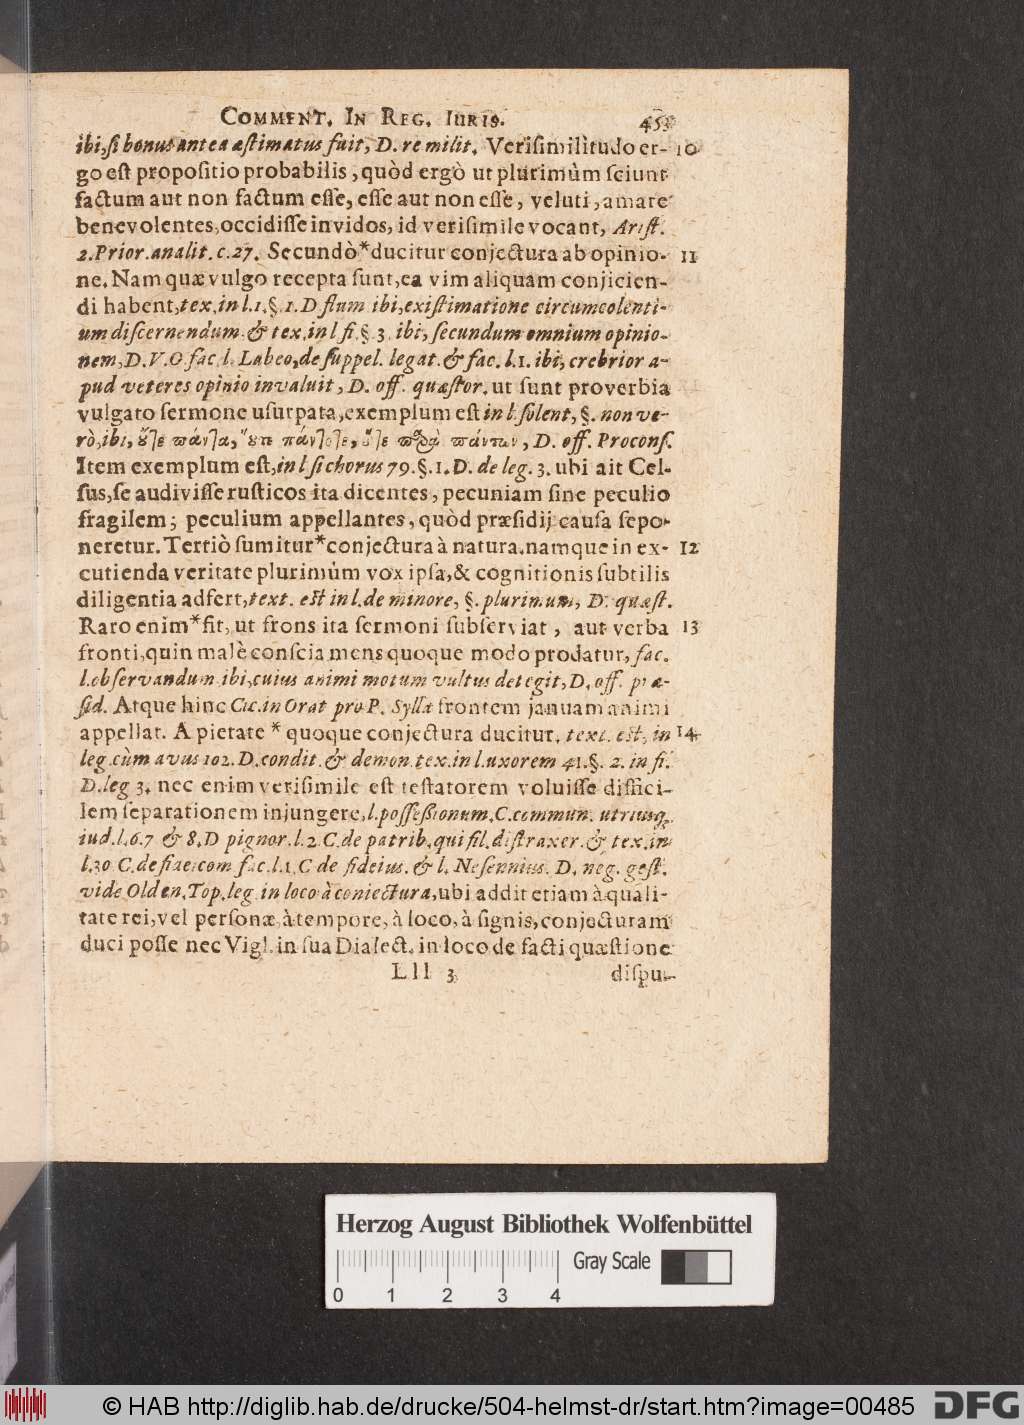 COMMENT. IN REG. IURIS. 453
ibi, si bonus antea æstimatus fuit, D. re milit. Verisimilitudo er- 10
go est propositio probabilis, quòd ergò ut plurimùm sciunt
factum aut non factum esse, esse aut non esse, veluti, amare
benevolentes, occidisse invidos, id verisimile vocant, Arist.
2. Prior. analit. c. 27. Secundò * ducitur conjectura ab opinio- 11
ne. Nam quæ vulgo recepta sunt, ea vim aliquam conjicien-
di habent, tex. in l. 1. §. 1. D flum ibi, existimatione circumcolenti-
um discernendum. & tex. in l fi. §. 3. ibi, secundum omnium opinio-
nem, D. V. O fac. l. Labeo, de suppel. legat. & fac. l. 1. ibi, crebrior a-
pud veteres opinio invaluit, D. off. quæstor. ut sunt proverbia
vulgato sermone usurpata, exemplum est in l. solent, §. non ve-
rò, ibi, ὄτε πάντα, ὄτε πάντοτε, ὄτε παρὰ πάντων, D. off. Procons.
Item exemplum est, in l si chorus 79. §. 1. D. de leg. 3. ubi ait Cel-
sus, se audivisse rusticos ita dicentes, pecuniam sine peculio
fragilem; peculium appellantes, quòd præsidij causa sepo-
neretur. Tertiò sumitur * conjectura à natura. namque in ex- 12
cutienda veritate plurimùm vox ipsa, & cognitionis subtilis
diligentia adfert, text. est in l. de minore, §. plurimum, D. quæst.
Raro enim * fit, ut frons ita sermoni subserviat, aut verba 13
fronti, quin malè conscia mens quoque modo prodatur, fac.
l. observandum ibi, cuius animi motum vultus detegit, D. off. præ-
sid. Atque hinc Cic. in Orat pro P. Sylla frontem januam animi
appellat. A pietate * quoque conjectura ducitur. text. est, in 14
leg. cùm avus 102. D. condit. & demon. tex. in l. uxorem 41. §. 2. in fi.
D. leg 3. nec enim verisimile est testatorem voluisse diffici-
lem separationem injungere, l. possessionum, C. commun. utriusq;
iud. l. 6. 7 & 8. D pignor. l. 2 C. de patrib. qui fil. distraxer. & tex. in
l. 30 C. de fideicom fac. l. 1. C de fideius. & l. Nesennius. D. neg. gest.
vide Olden. Top. leg. in loco à coniectura, ubi addit etiam à quali-
tate rei, vel personæ, à tempore, à loco, à signis, conjecturam
duci posse nec Vigl. in sua Dialect. in loco de facti quæstione
Lll 3 dispu-
Herzog August Bibliothek Wolfenbüttel
Gray Scale
0 1 2 3 4
© HAB http://diglib.hab.de/drucke/504-helmst-dr/start.htm?image=00485
DFG